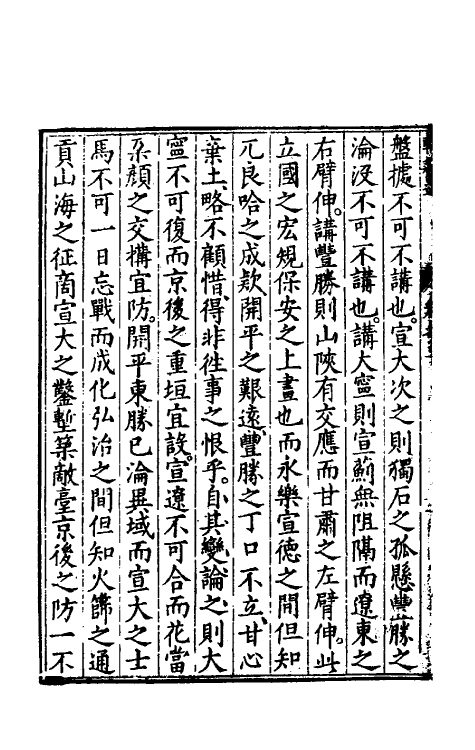 盤據不可不講也。宣大次之則獨石之孤懸豐勝之
淪没不可不講也。講大寧則宣薊無阻隔而遼東之
右臂伸。講豐勝則山陝有交應而甘肅之左臂伸。此
立國之宏規保安之上畫也而永樂宣德之間但知
兀良哈之成欵開平之艱遠豐勝之丁口不立甘心
棄土略不顧惜得非徃事之恨乎。自其變論之則大
寧不可復而京後之重垣宜設。宣遼不可合而花當
朶顏之交搆宜防。開平東勝已淪異域而宣大之士
馬不可一日忘戰而成化弘治之間但知火篩之通
貢山海之征商宣大之鑿塹築敵臺京後之防一不